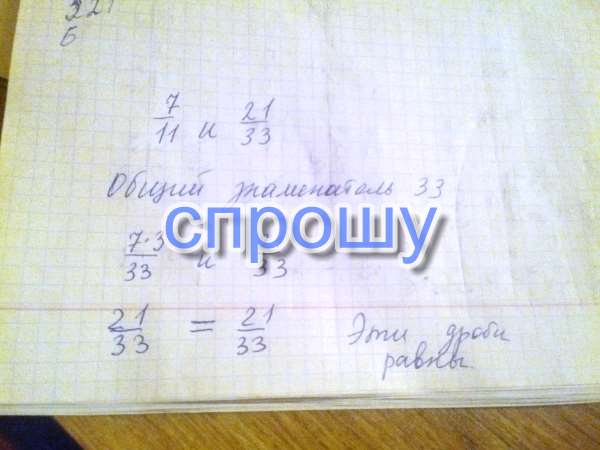 321
Б
7/11 и 21/33
Общий знаменатель 33
спрошу
7·3/33 и /33
21/33 = 21/33 Эти дроби
равны.